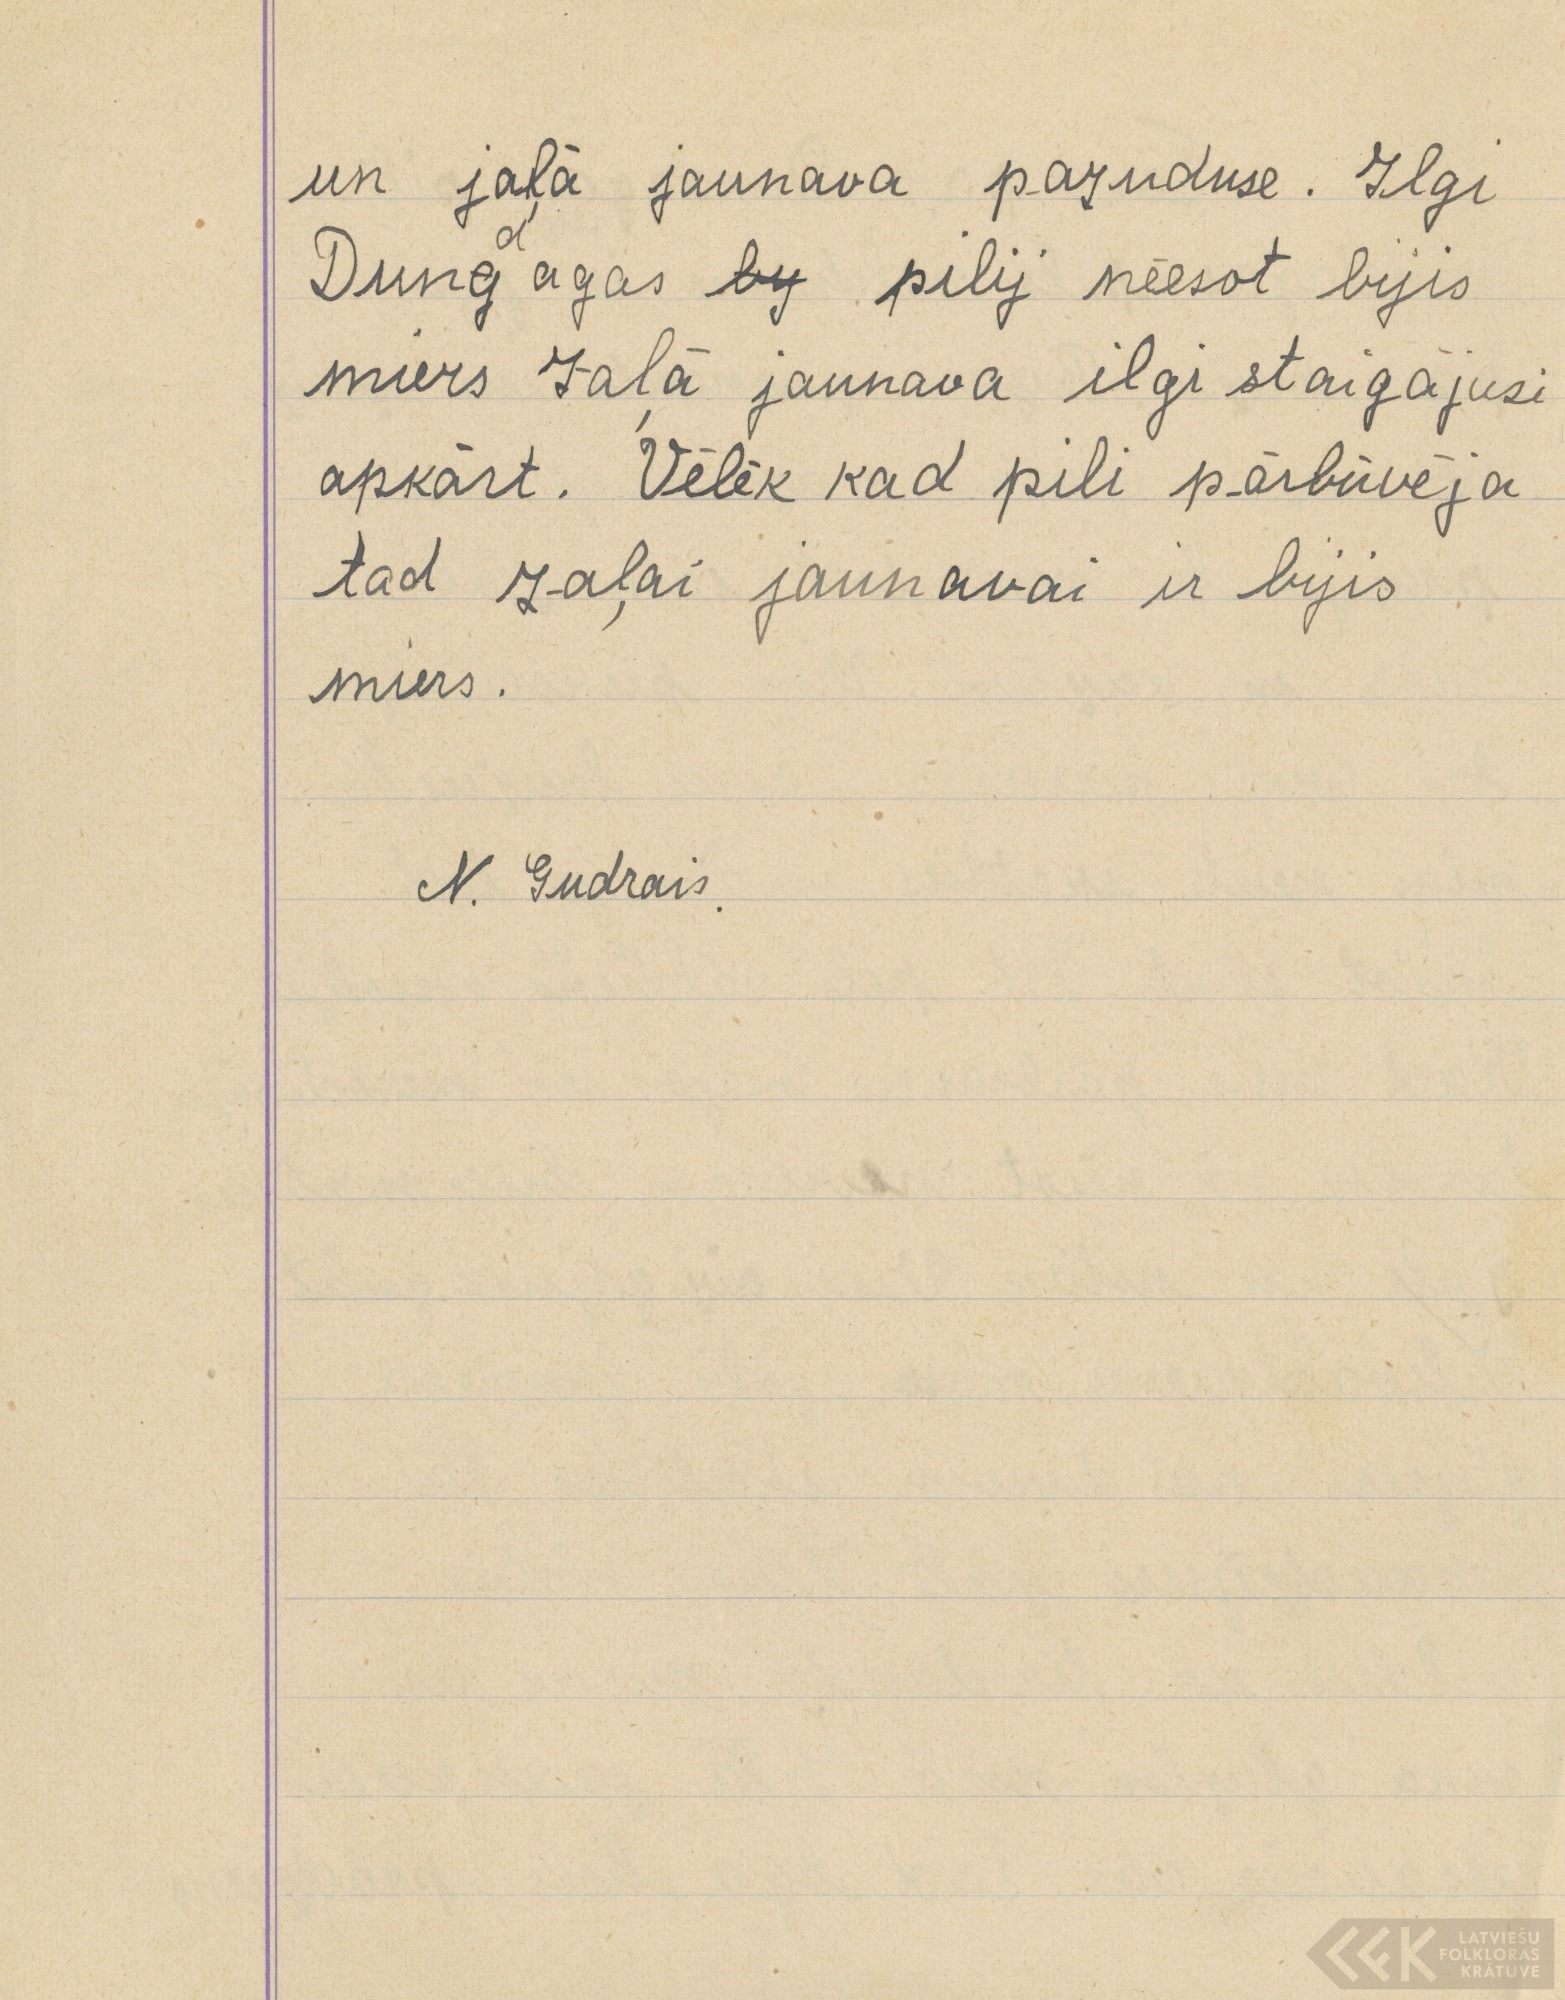 un jaļā jaunava pazuduse. Ilgi
Dungdagas by pilij nēesot bijis
miers Zaļā jaunava ilgi staigājusi
apkārt. Vēlēk kad pili pārbūvēja
tad zaļai jaunavai ir bijis
miers.
N. Gudrais.
LATVIEŠU
FOLKLORAS
KRĀTUVE